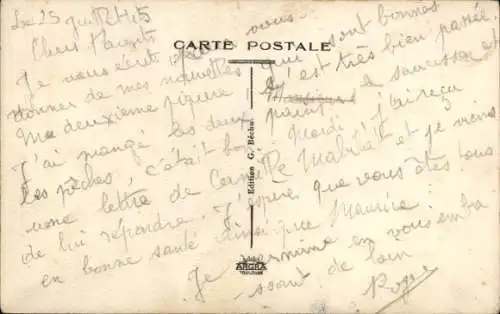 Le 25 juillet 45
Chers Parents
CARTE POSTALE
Je vous écris pour vous
donner de mes nouvelles qui sont bonnes
Ma deuxième piqure s'est très bien passée.
J'ai mangé les deux pains, le saucisson et
les pêches, c'était bon. Mardi j'ai reçu
une lettre de et je viens
de lui répondre. J'espère que vous êtes tous
en bonne santé ainsi que Maurice.
Je termine en vous embra
ssant de loin
Roger
Edition G. Béchu
ARGRA
TOULOUSE